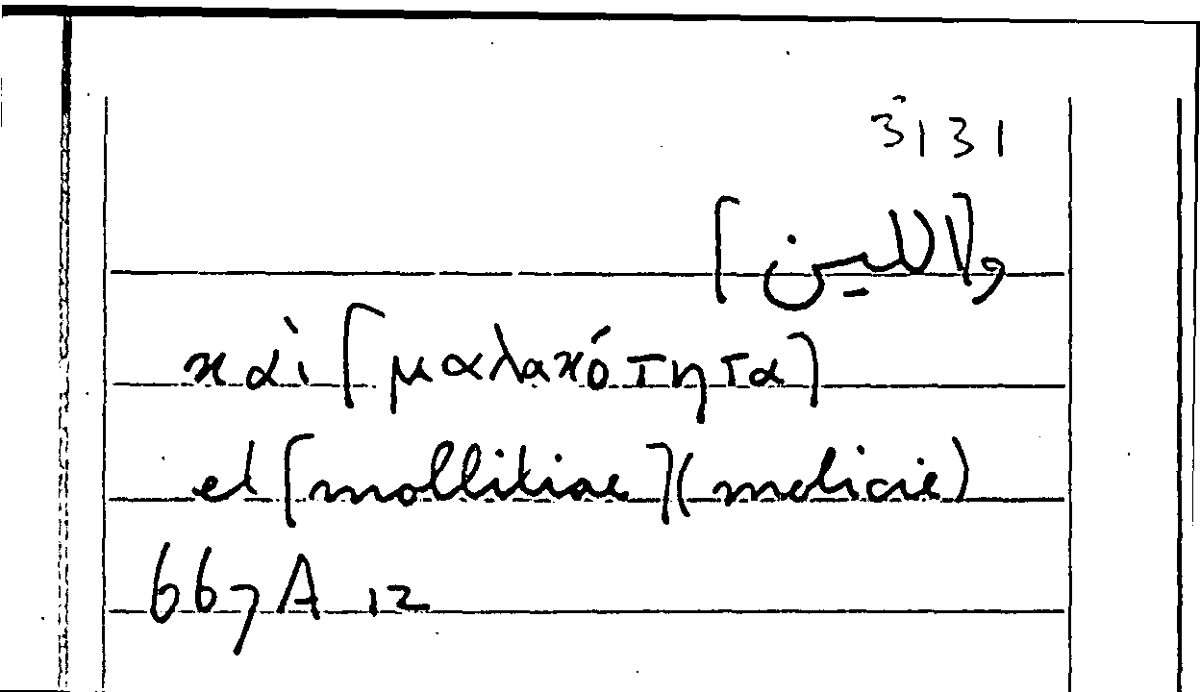 3131
و[اللين]
καὶ [μαλακότητα]
et [mollitiae] (molicie)
667A 12